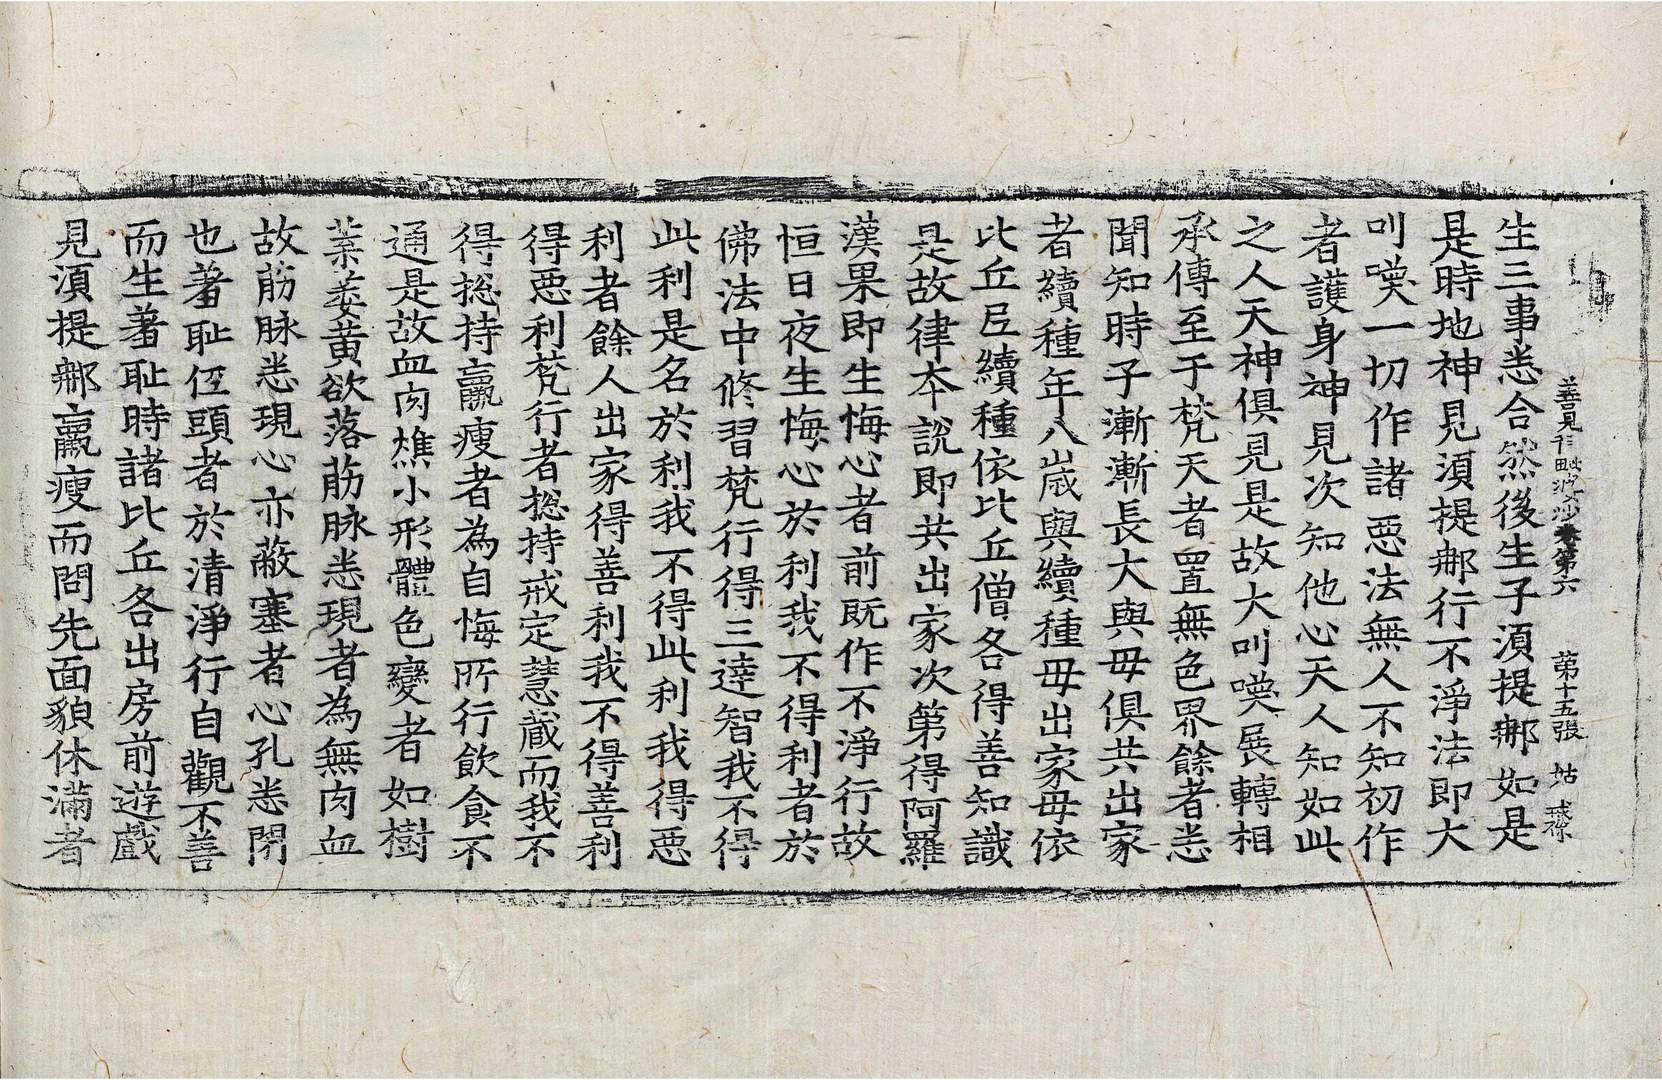 善見毗婆沙卷第六 第十五張 姑
生三事悉合然後生子湏提𨚗如是
是時地神見湏提𨚗行不淨法即大
叫嘆一切作諸惡法無人不知初作
者護身神見次知他心天人知如此
之人天神俱見是故大叫喚展轉相
承傳至于梵天者置無色界餘者悉
聞知時子漸漸長大與毋俱共出家
者續種年八歲與續種毋出家毋依
比丘尼續種依比丘僧各得善知識
是故律本說即共出家次第得阿羅
漢果即生悔心者前既作不淨行故
恒日夜生悔心於利我不得利者於
佛法中修習梵行得三達智我不得
此利是名於利我不得此利我得惡
利者餘人出家得善利我不得善利
得惡利梵行者捴持戒定慧藏而我不
得捴持羸瘦者為自悔所行飲食不
通是故血肉燋小形體色變者如樹
葉萎黃欲落筋脉悉現者為無肉血
故筋脉悉現心亦蔽塞者心孔悉閉
也羞耻低頭者於清淨行自觀不善
而生羞耻時諸比丘各出房前遊戲
見湏提𨚗羸瘦而問先面貌休滿者